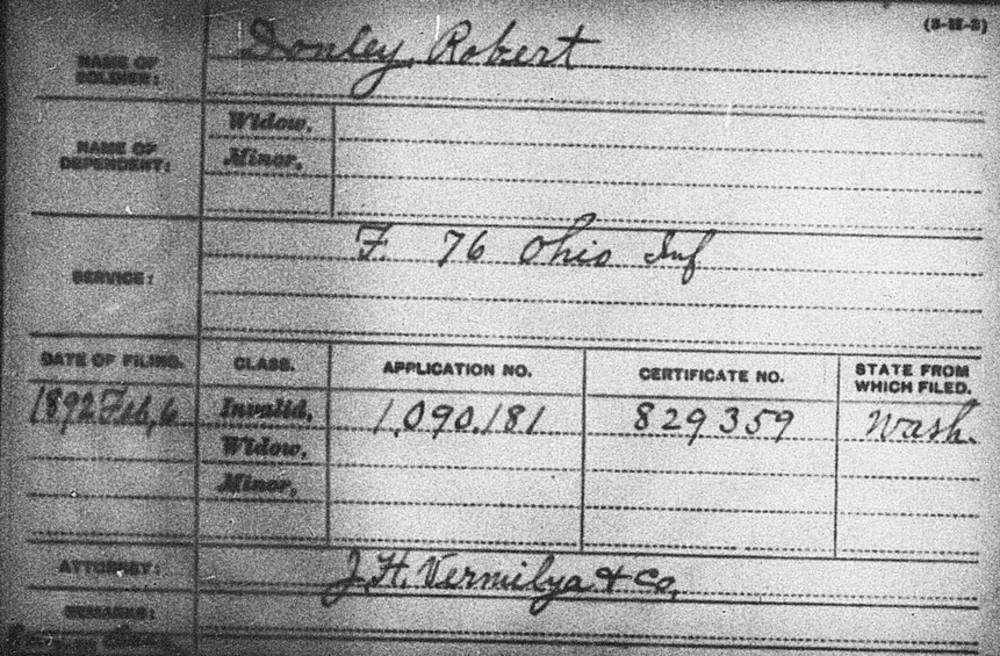 (3-III-3)
NAME OF SOLDIER: Donley, Robert
NAME OF DEPENDENT: Widow,
Minor,
SERVICE: F. 76 Ohio Inf
DATE OF FILING. CLASS. APPLICATION NO. CERTIFICATE NO. STATE FROM WHICH FILED.
1892 Feb, 6 Invalid, 1,090,181 829359 Wash.
Widow,
Minor,
ATTORNEY: J. H. Vermilya & Co,
REMARKS: